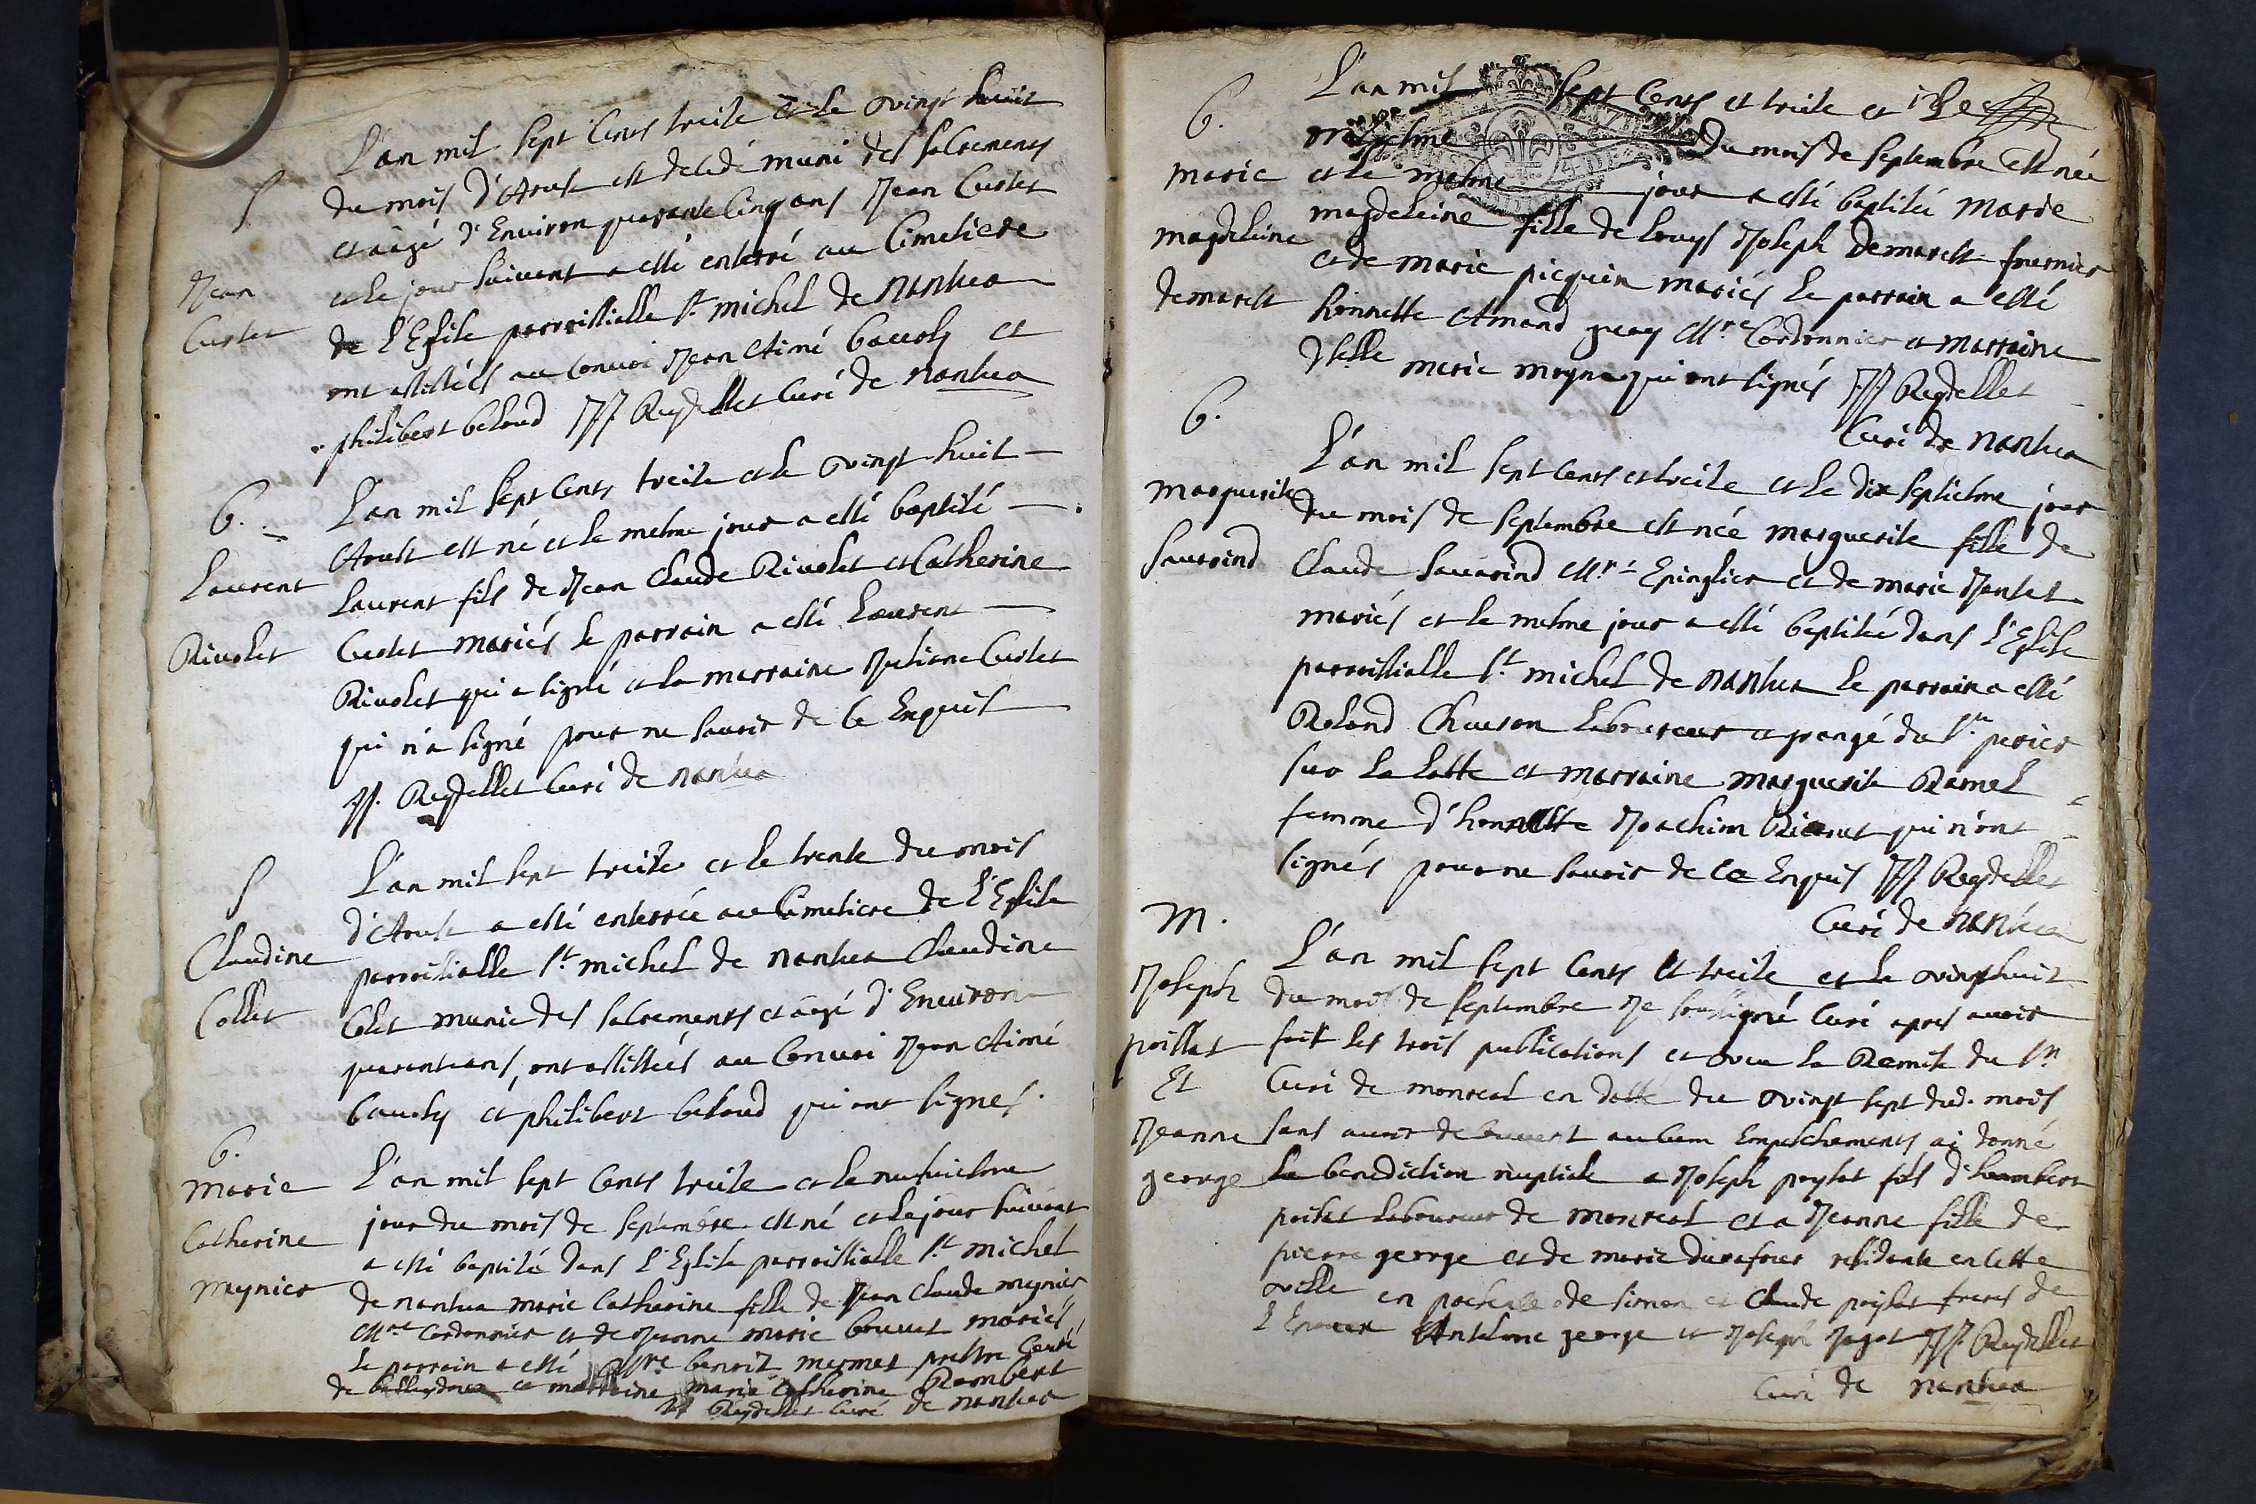 S
Jean
Curlet
L'an mil sept cents treise et le vingt huit
du mois d'Aoust est decedé muni des sacrements
et aagé d'Environ quarante Cinq ans Jean Curlet
et le jour suivant a esté enterré au Cimetiere
de l'Eglise parroissialle St michel de nantua
ont assistées au convoi Jean Aimé
philibert beloud JJ Reydellet Curé de nantua
B.
Laurent
Rivolet
L'an mil sept cents treise et le vingt huit
Aoust est né et le mesme jour a esté baptisé
Laurent fils de Jean Claude Rivolet et Catherine
Curlet mariés le parrain a esté Laurent
Rivolet qui a signé et la marraine Juliane Curlet
qui n'a signé pour ne savoir de ce Enquis
JJ. Reydellet Curé de nantua
S
Claudine
Collet
L'an mil sept treise et le trente du mois
d'Aoust a esté enterrée au Cimetiere de l'Eglise
parroissialle St michel de nantua Claudine
Colet munie des sacrements et aagé d'Environ
quarent ans, ont assistées au Convoi Jean Aimé
et philibert beloud qui ont signés.
B.
Marie
Catherine
Meynier
L'an mil sept cents treise et le neufviesme
jour du mois de septembre est né et le jour suivant
a esté baptisé dans l'Eglise parroissialle St michel
de nantua marie Catherine fille de Jean Claude meynier
Mre cordonnier et de Jeanne marie bouvet mariés
le parrain a esté Mre benoit mermet prestre Curé
de et marraine marie Catherine Rambert
JJ Reydellet Curé de nantua
B.
marie
magdeleine
demarest
L'an mil sept cents et treise et le
du mois de septembre est née
et le mesme jour a esté baptisée Marie
magdeleine fille de Louys Joseph Demarest fournier
et de marie picquin mariés le parrain a esté
honneste Amand guey Mre Cordonnier et marraine
dselle marie moyne qui ont signés JJ Reydellet
Curé de nantua
B.
marguerite
Savarind
L'an mil sept cents et treise et le dix septiesme jour
du mois de septembre est née marguerite fille de
Claude Savarind Mre Epinglier et de marie Jantet
mariés et le mesme jour a esté baptisée dans l'Eglise
parroissialle St michel de nantua le parrain a esté
Roland Chaeron laboureur et grangé du Sr perier
sur la latte et marraine marguerite Ramel
femme d'honneste Joachim qui n'ont
signés pour ne savoir de ce Enquis JJ Reydellet
Curé de nantua
M.
Joseph
poillat
Et
Jeanne
george
L'an mil sept cents et treise et le vingt huit
du mois de septembre Je soussigné Curé apres avoir
fait les trois publications et veu la Remise du Sr
Curé de montreal en datte du vingt sept dud. mois
sans avoir decouvert aucum Empeschements ai donné
la benediction nuptiale a Joseph poylat fils d'humbert
poilat laboureur de montreal et a Jeanne fille de
pierre george et de marie durafour residante en cette
ville en presence de simon et Claude poylat freres de
l'Epoux Antelme george et Joseph Jagot JJ Reydellet
Curé de nantua